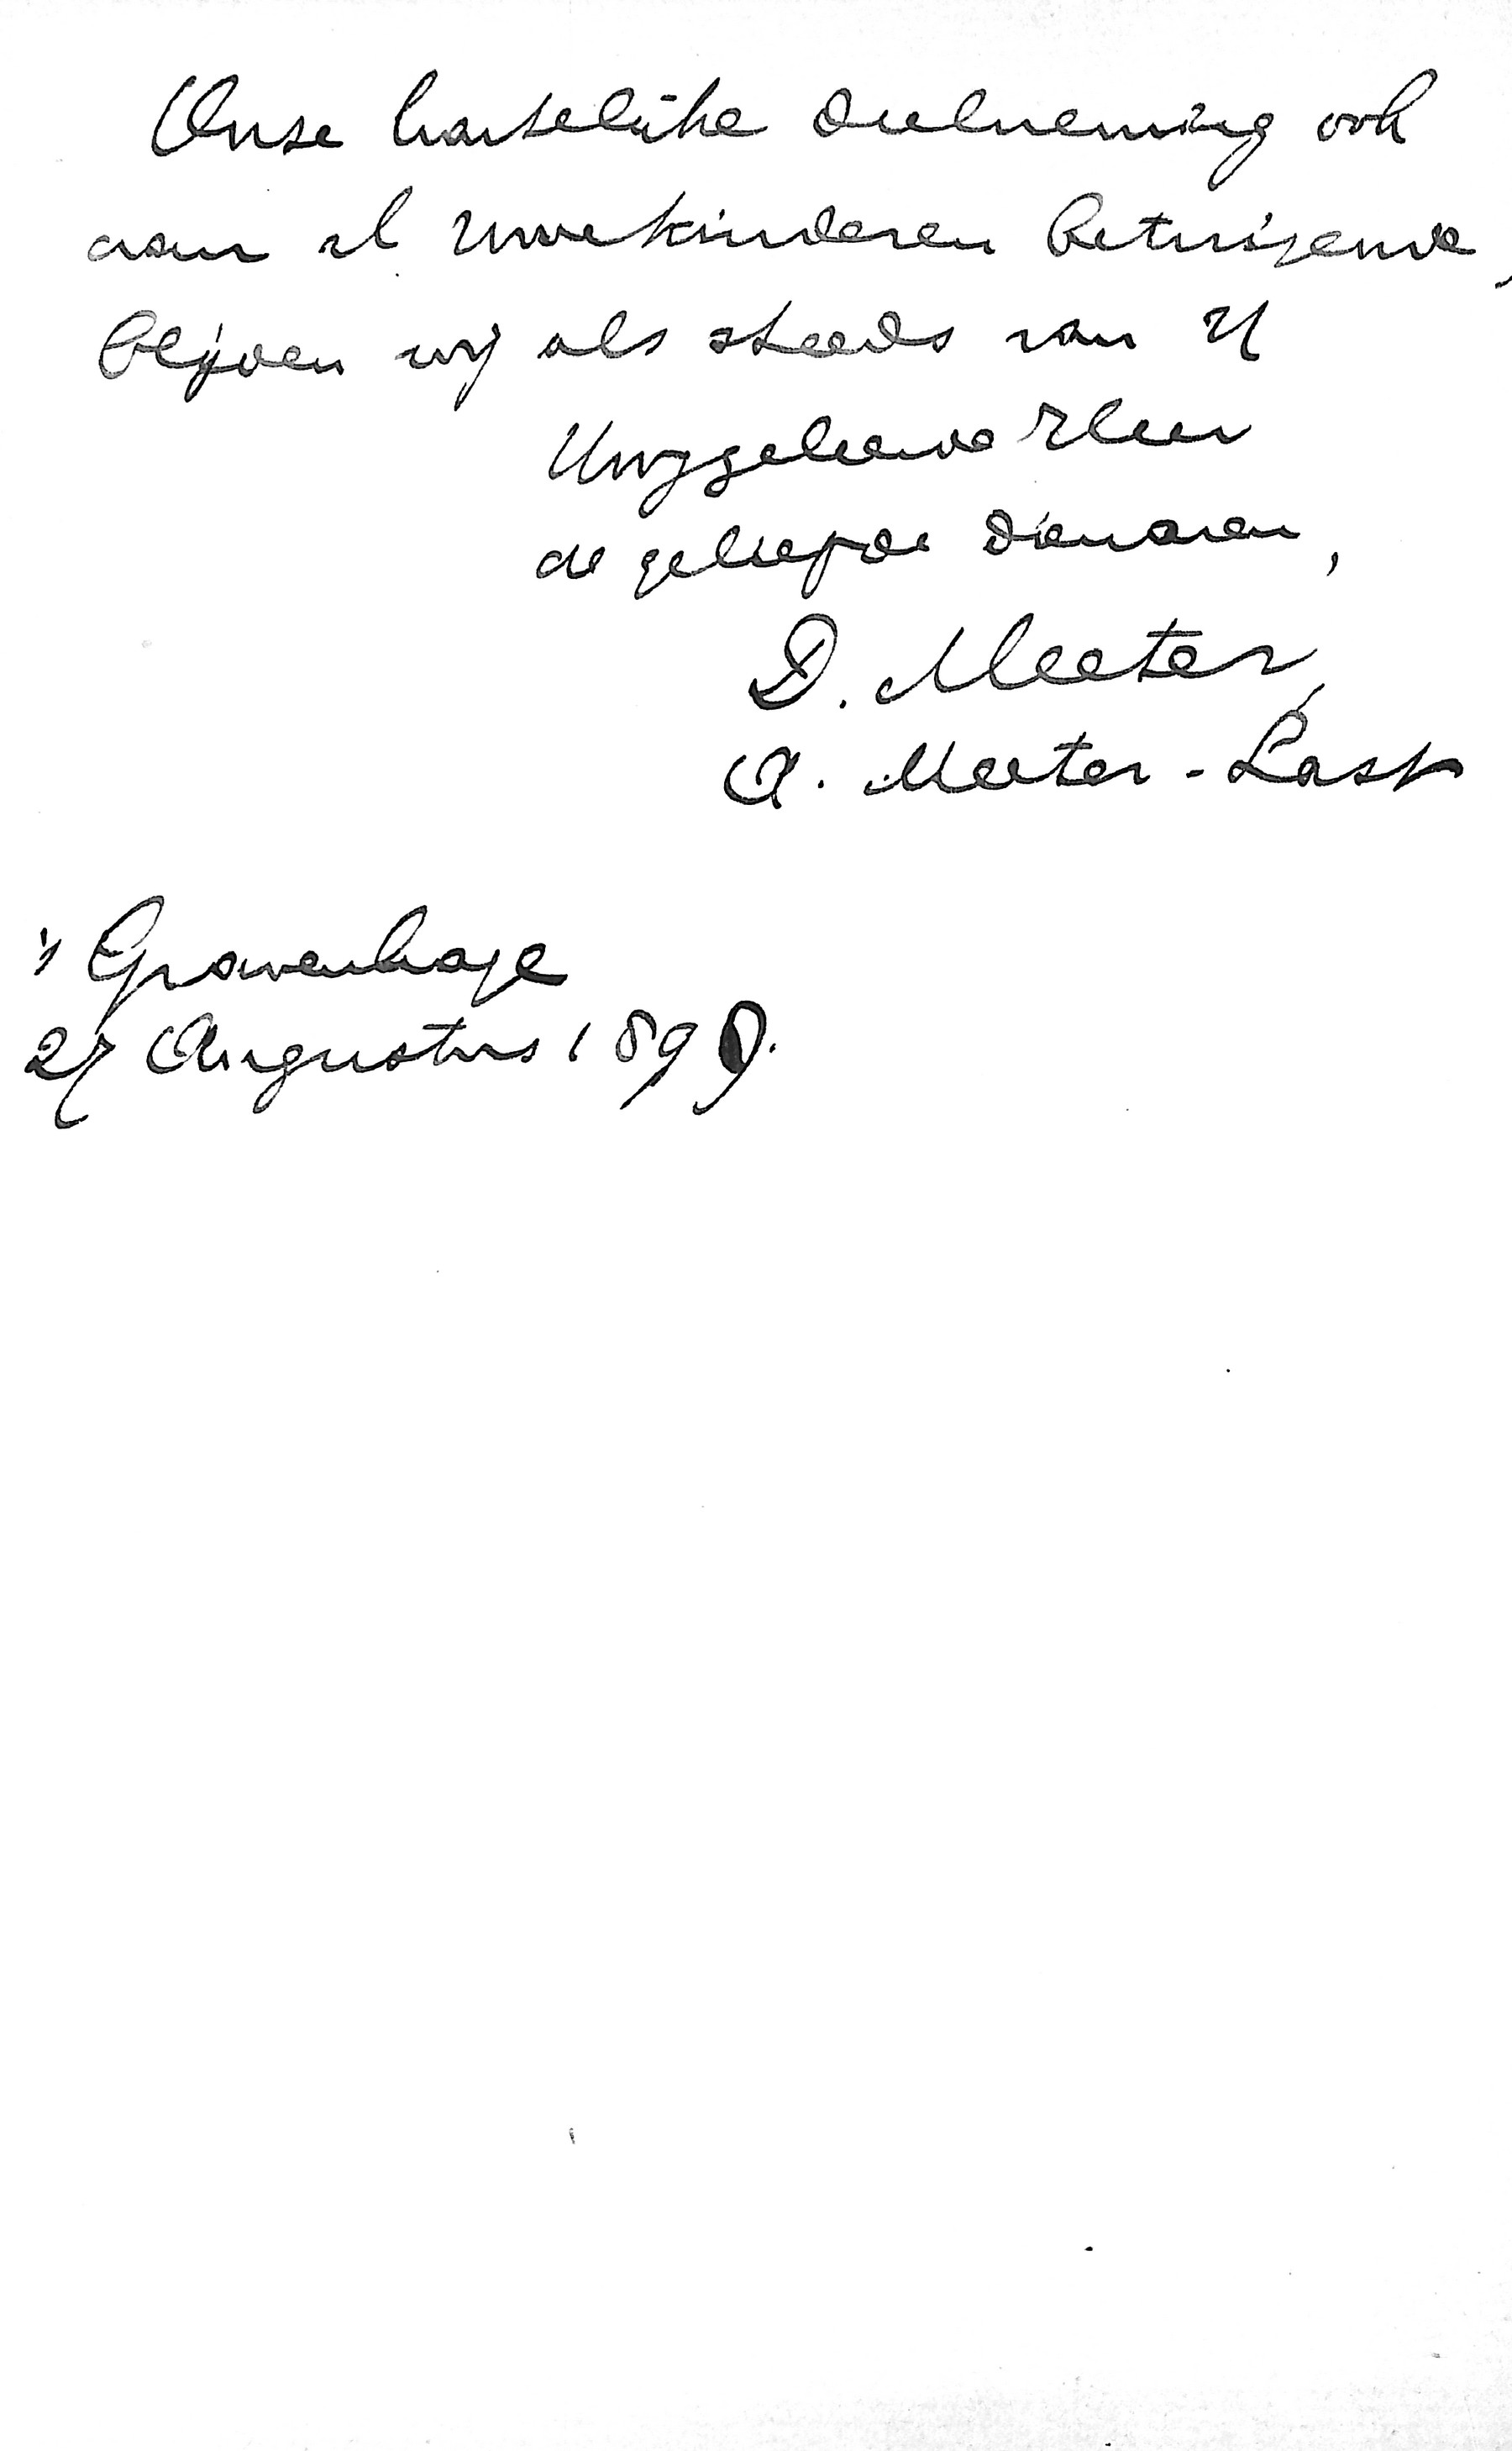 Onse hartelijke deelneming ook
aan al Uwe kinderen betuigende,
blijven wij als steeds van U
Hooggeleerde Heer
de geliefde dienaren,
D. Meeter,
A. Meeter - Last
's Gravenhage
27 Augustus 1898.